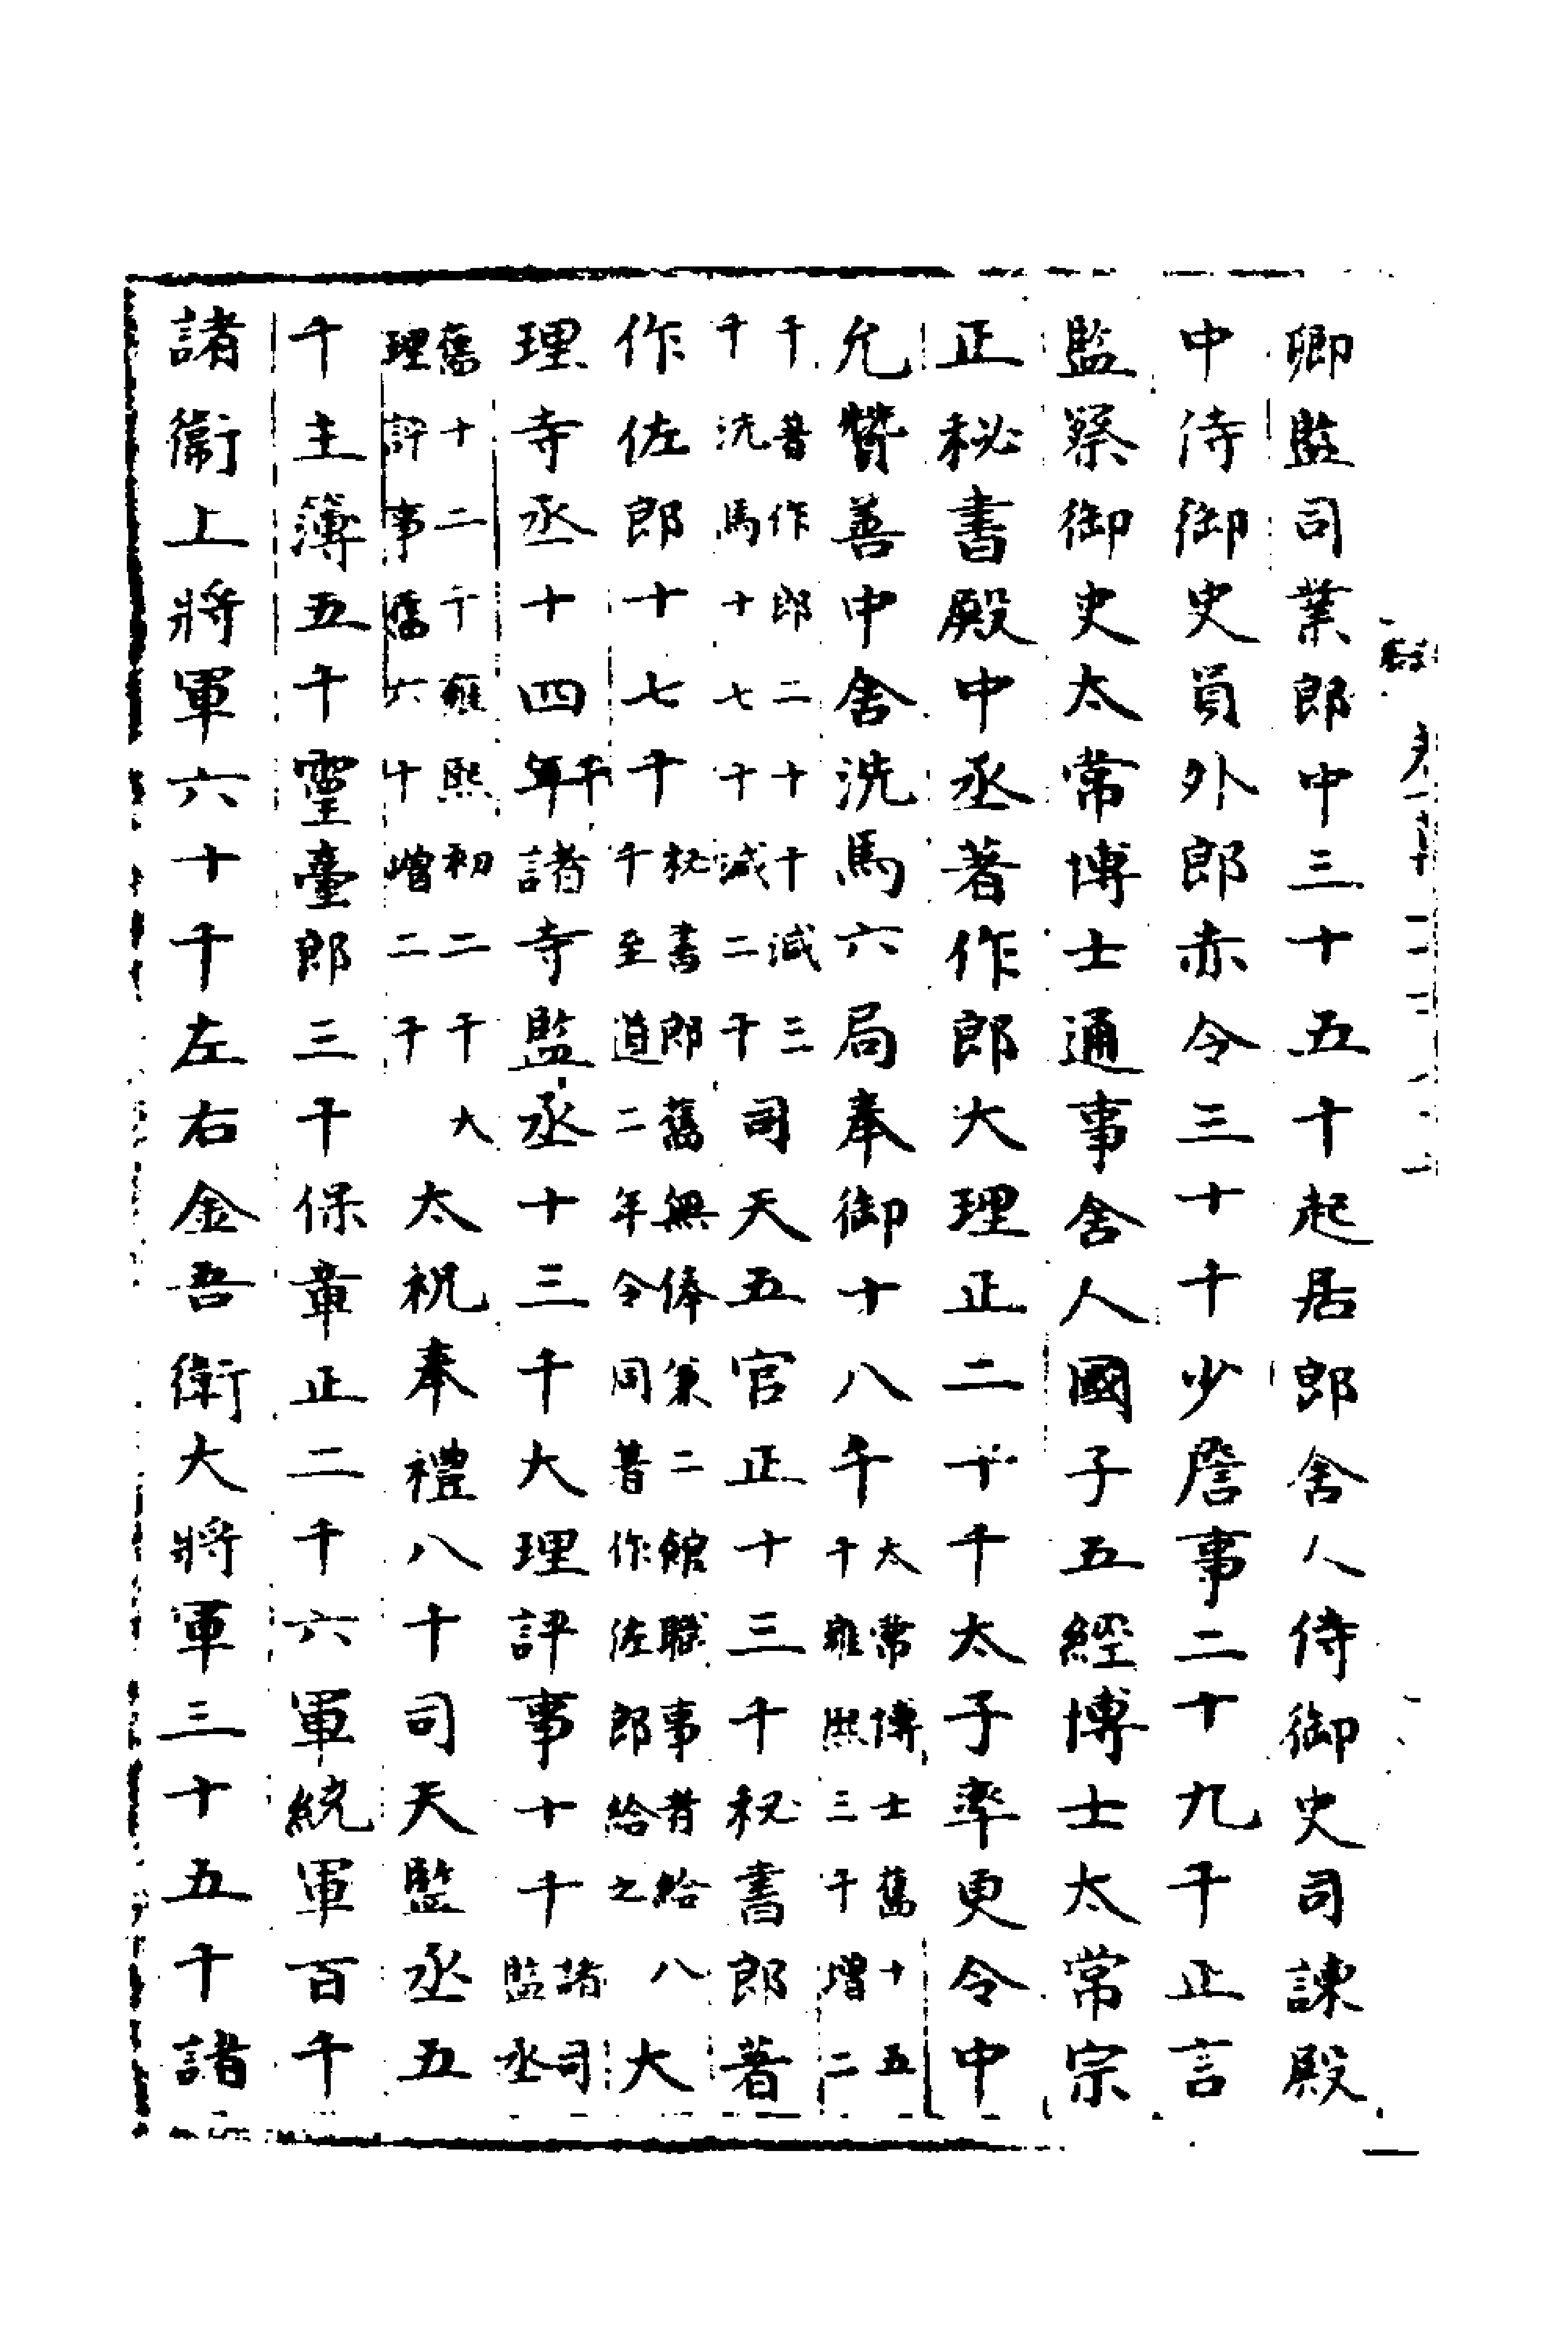 卿監司業郎中三十五千起居郎舍人侍御史司諫殿
中侍御史員外郎赤令三十千少詹事二十九千正言
監察御史太常博士通事舍人國子五經博士太常宗
正秘書殿中丞著作郎大理正二十千太子率更令中
允贊善中舍洗馬六局奉御十八千太常博士舊十五千雍熙三千增二
千著作郎二十千減三千洗馬十七千減二千司天五官正十三千秘書郎著
作佐郎十七千秘書郎舊無俸兼二館職事者給八千至道二年令同著作佐郎給之大
理寺丞十四年千諸寺監丞十三千大理評事十千諸司監丞
舊十二千雍熙初二千大理評事舊六十增二千太祝奉禮八千司天監丞五
千主簿五千靈臺郎三千保章正二千六軍統軍百千
諸衛上將軍六十千左右金吾衛大將軍三十五千諸